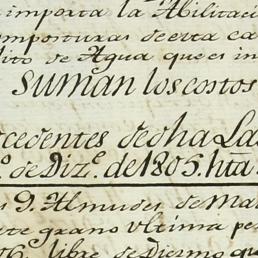 importa la Abilitaci
mposturas de esta ca
ito de Agua que es in
Suman los costos
cedentes dedha La
º. de Dizᵉ. de 1805. hta
s 9. Almudes de Ma
te grano ultima pe
libre de Diezmo que